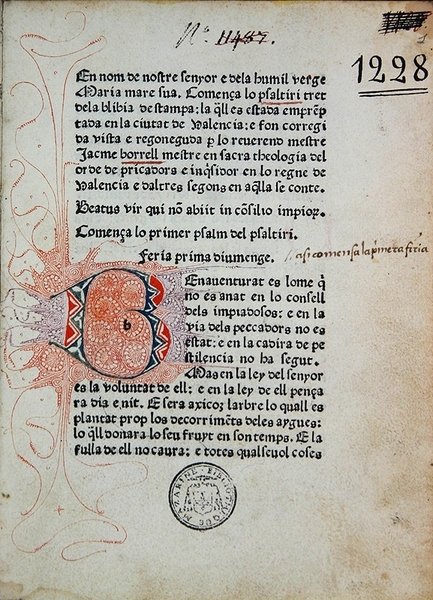 Nº. 11487.
1
1228
En nom de nostre senyor e dela humil verge
Maria mare sua. Comença lo psaltiri tret
dela blibia de stampa: la q̃ll es estada emprẽp
tada en la ciutat de Valencia: e fon corregi
da vista e regoneguda ꝑ lo reuerend mestre
Jacme borrell mestre en sacra theologia del
orde de pricadors e inq̃sidor en lo regne de
Valencia e daltres segons en aq̃lla se conte.
Beatus vir qui nõ abiit in cõsilio impioꝝ.
Comença lo primer psalm del psaltiri.
Feria prima diumenge.
asi comensa la pͥmera firia
b
Enauenturat es lome q̃
no es anat en lo consell
dels impiadosos: e en la
via dels peccadors no es
estat: e en la cadira de pe
stilencia no ha segut.
Mas en la ley del senyor
es la voluntat de ell: e en la ley de ell pença
ra dia e nit. E sera axicoꝫ larbre lo quall es
plantat prop los decorrimẽts deles aygues:
lo q̃ll donara lo seu fruyt en son temps. E la
fulla de ell no caura: e totes qualseuol coses
BIBLIOTHEQUE MAZARINE